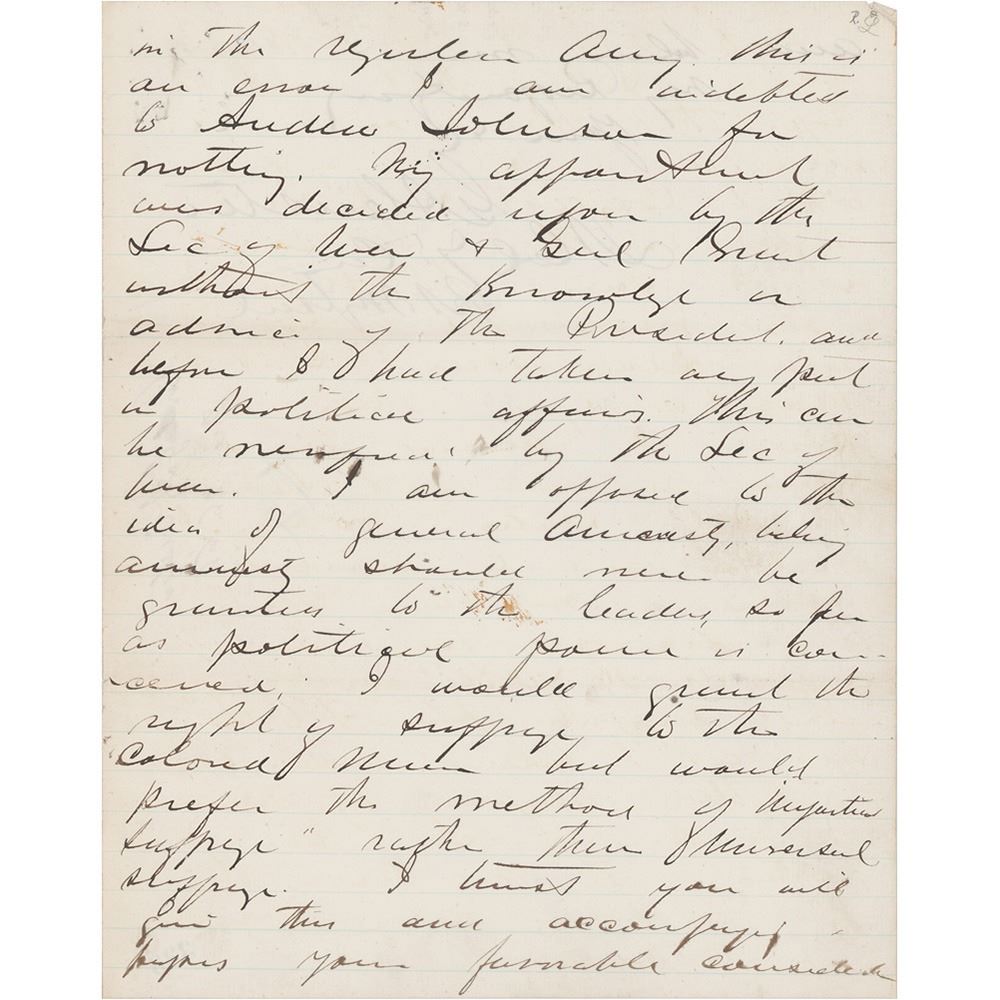 in the regular Army. This is
an error I am indebted
to Andrew Johnson for
nothing. My appointment
was decided upon by the
Sec of War & Genl Grant
without the Knowledge or
advice of the President. and
before I had taken any part
in political affairs. This can
be by the Sec of
War. I am opposed to the
idea of general Amnesty,
amnesty should never be
granted to the leaders, so far
as political power is con-
cerned, I would grant the
right of suffrage to the
Colored Man but would
prefer the method of "Impartial
suffrage" rather than Universal
suffrage. I trust you will
give this and accompanying
papers your favorable consideration